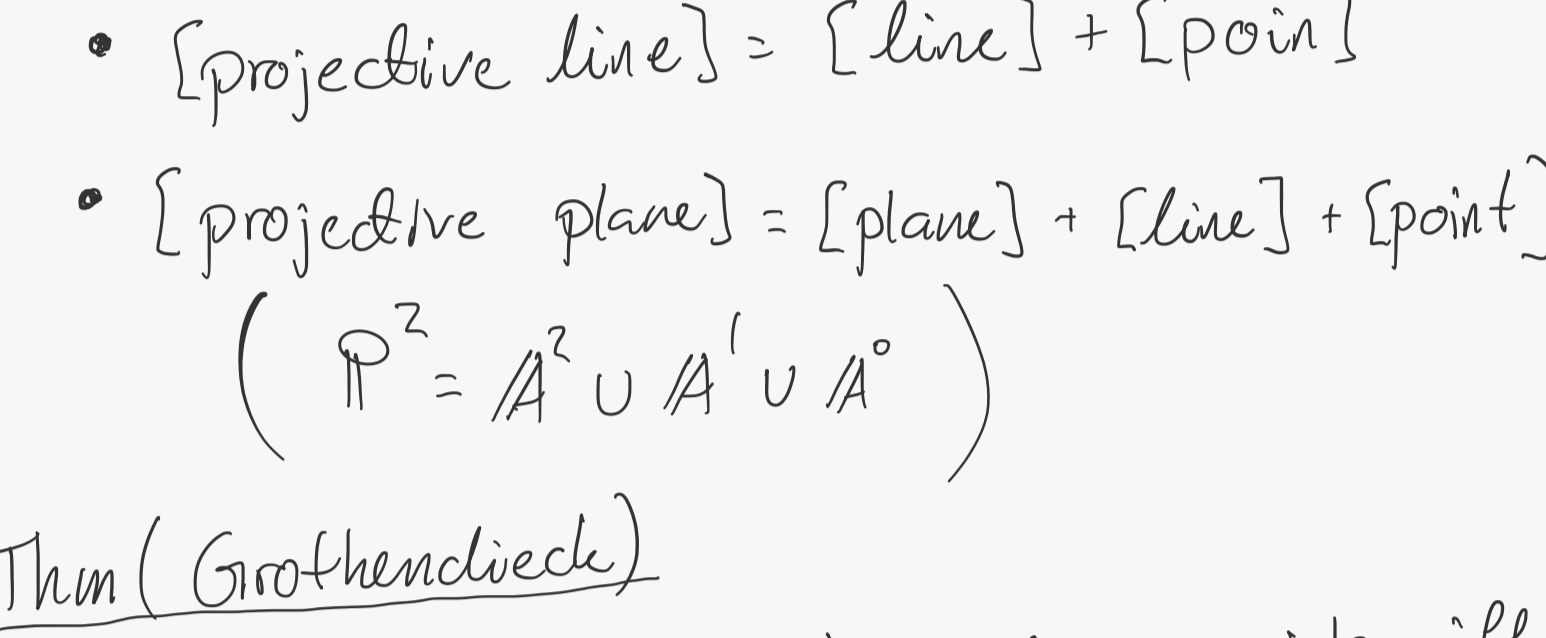 • [projective line] = [line] + [poin]
• [projective plane] = [plane] + [line] + [point]
( ℙ² = 𝔸² ∪ 𝔸¹ ∪ 𝔸⁰ )
Thm (Grothendieck)